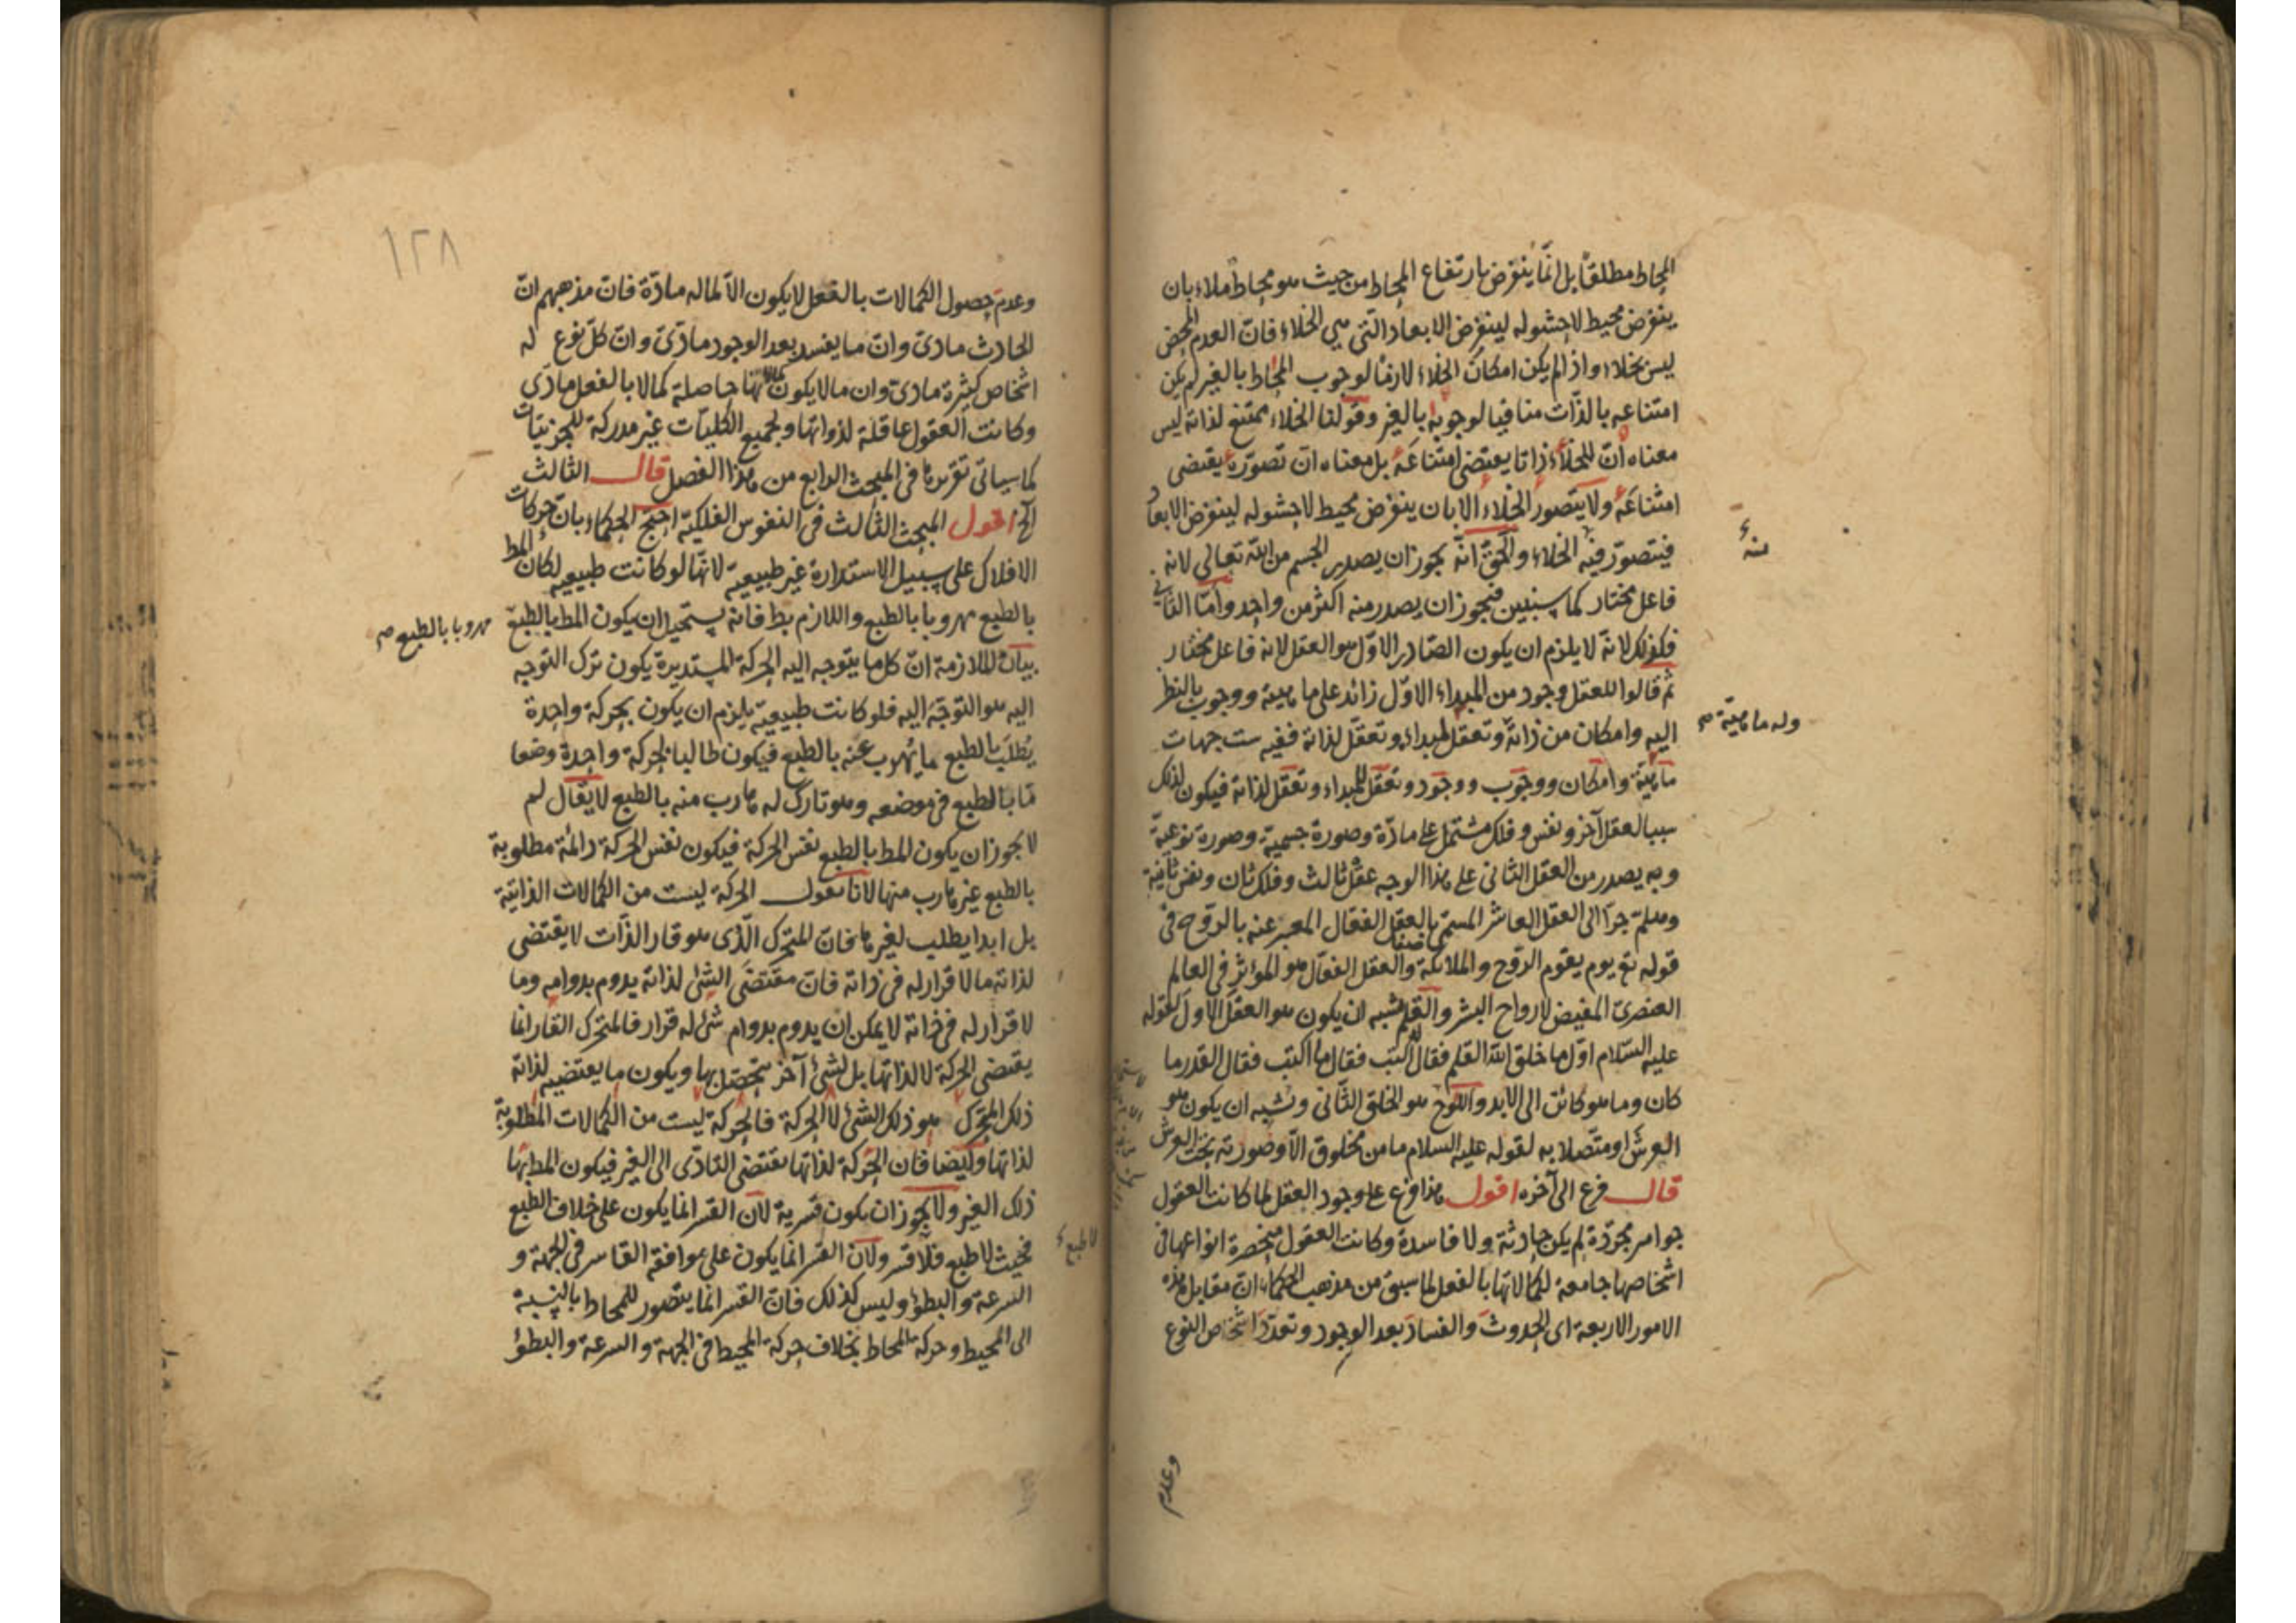 المحاط مطلقا بل انما ينفرض بارتفاع المحاط من حيث هو محاط ملاء بان
ينفرض محيط لا حشو له لينفرض الابعاد التى هى الخلاء فان العدم المحض
ليس بخلاء واذا لم يكن امكان الخلاء لازما لوجوب المحاط بالغير لم يكن
امتناعه بالذات منافيا لوجوبه بالغير وقولنا الخلاء ممتنع لذاته ليس
معناه ان للخلاء ذاتا يقتضى امتناعه بل معناه ان تصوره يقتضى
امتناعه ولا يتصور الخلاء الا بان ينفرض محيط لا حشو له لينفرض الابعاد
فيتصور فيه الخلاء والحق انه يجوز ان يصدر الجسم من الله تعالى لانه
منه
فاعل مختار كما سنبين فيجوز ان يصدر منه اكثر من واحد واما الثانى
فكذلك لانه لا يلزم ان يكون الصادر الاول هو العقل لانه فاعل مختار
ثم قالوا للعقل وجود من المبداء الاول زائد على ماهيته ووجوب بالنظر
وله ماهية صح
اليه وامكان من ذاته وتعقل لمبداء وتعقل لذاته ففيه ست جهات
ماهية وامكان ووجوب ووجود وتعقل للمبداء وتعقل لذاته فيكون لذلك
سببا لعقل آخر ونفس وفلك مشتمل على مادة وصورة جسمية وصورة نوعية
وبه يصدر من العقل الثانى على هذا الوجه عقل ثالث وفلك ثان ونفس ثانية
وهلم جرا الى العقل العاشر المسمى بالعقل الفعال المعبر عنه بالروح فى
قوله تع يوم يقوم الروح والملائكة صفا والعقل الفعال هو المؤثر فى العالم
العنصرى المفيض لارواح البشر والقلم يشبه ان يكون هو العقل الاول لقوله
عليه السلام اول ما خلق الله القلم فقال له اكتب فقال ما اكتب فقال القدر ما
كان وما هو كائن الى الابد واللوح هو الخلق الثانى ويشبه ان يكون هو
العرش او متصلا به لقوله عليه السلام ما من مخلوق الا وصورته تحت العرش
قال فرع الى آخره اقول هذا فرع على وجود العقل لما كانت العقول
جواهر مجردة لم يكن حادثة ولا فاسدة وكانت العقول منحصرة انواعها فى
اشخاصها جامعة لكمالاتها بالفعل لما سبق من مذهب الحكماء ان مقابل هذه
الامور الاربعة اى الحدوث والفساد بعد الوجود وتعدد اشخاص النوع
وعدم
١٢٨
وعدم حصول الكمالات بالفعل لا يكون الا لما له مادة فان مذهبهم ان
الحادث مادى وان ما يفسد بعد الوجود مادى وان كل نوع له
اشخاص كثيرة مادى وان ما لا يكون كمالاتها حاصلة كمالا بالفعل مادى
وكانت العقول عاقلة لذواتها ولجميع الكليات غير مدركة للجزئيات
كما سيأتى تقريرها فى المبحث الرابع من هذا الفصل قال الثالث
الخ اقول المبحث الثالث فى النفوس الفلكية احتج الحكماء بان حركات
الافلاك على سبيل الاستدارة غير طبيعية لانها لو كانت طبيعية لكان المط
بالطبع مهروبا بالطبع واللازم بط فانه يستحيل ان يكون المط بالطبع
مهروبا بالطبع صح
بيان الملازمة ان كل ما يتوجه اليه الحركة المستديرة يكون ترك التوجه
اليه هو التوجه اليه فلو كانت طبيعية يلزم ان يكون بحركة واحدة
يطلب بالطبع ما يهرب عنه بالطبع فيكون طالبا بحركة واحدة وضعا
ما بالطبع فى موضعه وهو تارك له هارب منه بالطبع لا يقال لم
لا يجوز ان يكون المط بالطبع نفس الحركة فيكون نفس الحركة دائمة مطلوبة
بالطبع غير هارب منها لانا نقول الحركة ليست من الكمالات الذاتية
بل ابدا يطلب لغيرها فان المتحرك الذى هو قار الذات لا يقتضى
لذاته ما لا قرار له فى ذاته فان مقتضى الشئ لذاته يدوم بدوامه وما
لا قرار له فى ذاته لا يمكن ان يدوم بدوام شئ له قرار فالمتحرك القار انما
يقتضى الحركة لا لذاتها بل لشئ آخر يتحصل بها ويكون ما يقتضيه لذاته
ذلك المتحرك هو ذلك الشئ لا الحركة فالحركة ليست من الكمالات المطلوبة
لذاتها وايضا فان الحركة لذاتها يقتضى التادى الى الغير فيكون المط بها
ذلك الغير ولا يجوز ان يكون قسرية لان القسر انما يكون على خلاف الطبع
فحيث لا طبع فلا قسر ولان القسر انما يكون على موافقة القاسر فى الجهة و
لا طبع
السرعة والبطؤ وليس كذلك فان القسر انما يتصور للمحاط بالنسبة
الى المحيط وحركة المحاط بخلاف حركة المحيط فى الجهة والسرعة والبطؤ